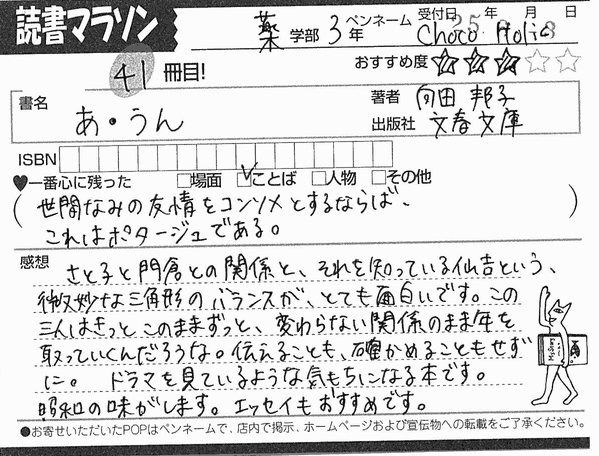 読書マラソン
薬 学部 3年 ペンネーム Choco Holic
受付日 25年 月 日
41 冊目! おすすめ度 ★★★☆☆
書名 あ・うん
著者 向田 邦子
出版社 文春文庫
ISBN
♥一番心に残った □場面 ☑ことば □人物 □その他
(世間なみの友情をコンソメとするならば、
これはポタージュである。)
感想 さと子と門倉との関係と、それを知っている仙吉という、
微妙な三角形のバランスが、とても面白いです。この
三人はきっと、このままずっと、変わらない関係のまま年を
取っていくんだろうな。伝えることも、確かめることもせず
に。 ドラマを見ているような気もちになる本です。
昭和の味がします。エッセイもおすすめです。
●お寄せいただいたPOPはペンネームで、店内で掲示、ホームページおよび宣伝物への転載をご了承ください。